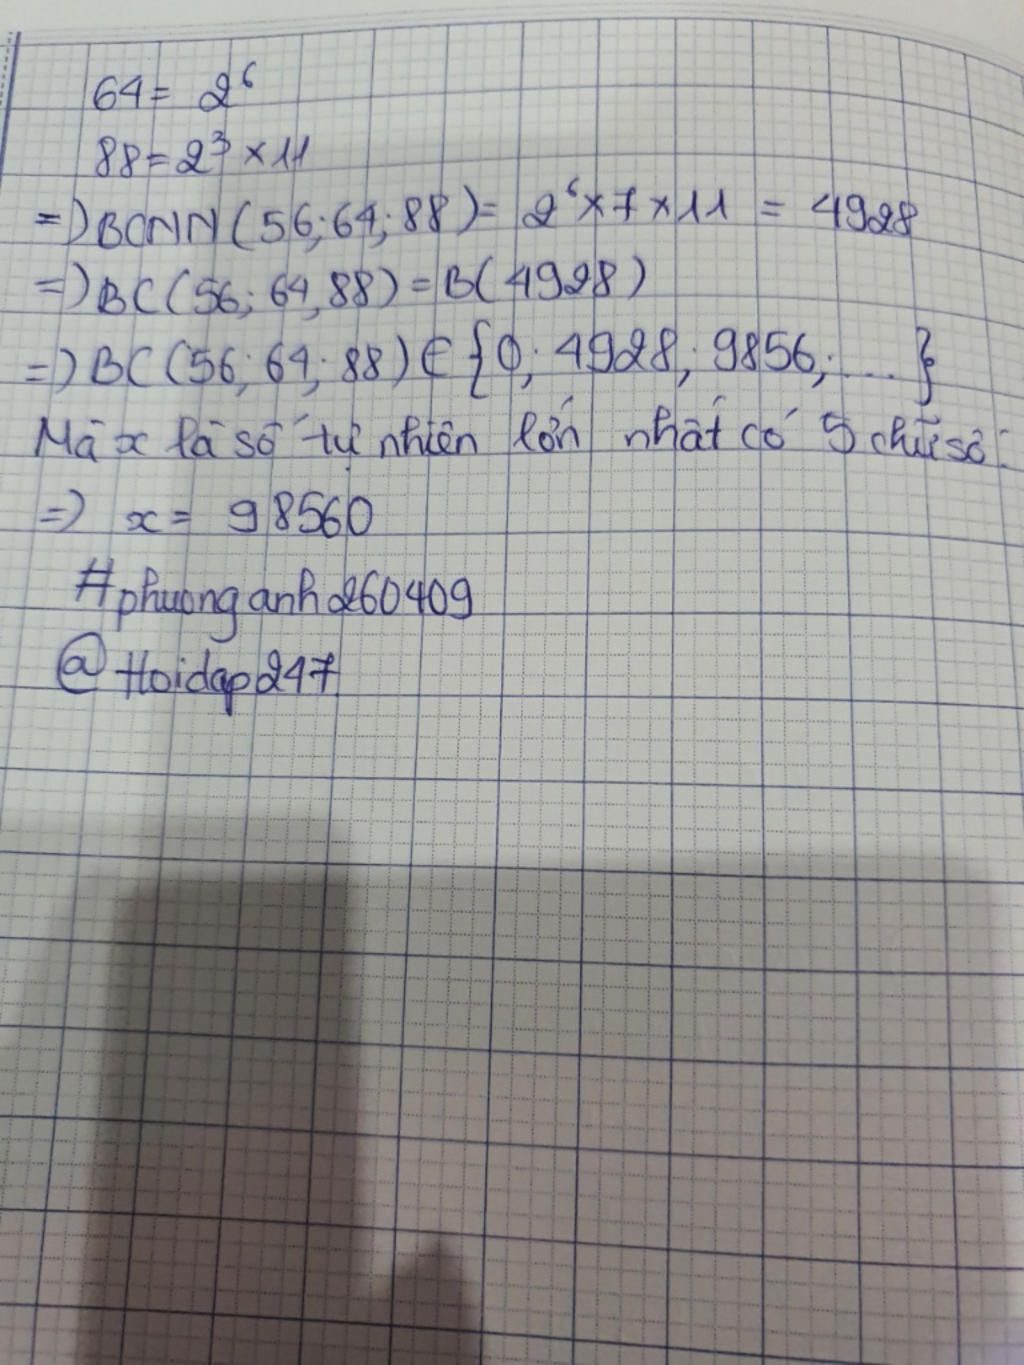 64 = 2⁶
88 = 2³ × 11
=> BCNN (56; 64; 88) = 2⁶ × 7 × 11 = 4928
=> BC (56; 64, 88) = B( 4928 )
=> BC (56; 64; 88) ∈ {0; 4928; 9856; ... }
Mà x là số tự nhiên lớn nhất có 5 chữ số.
=> x = 98560
#phuonganh260409
@Hoidap247